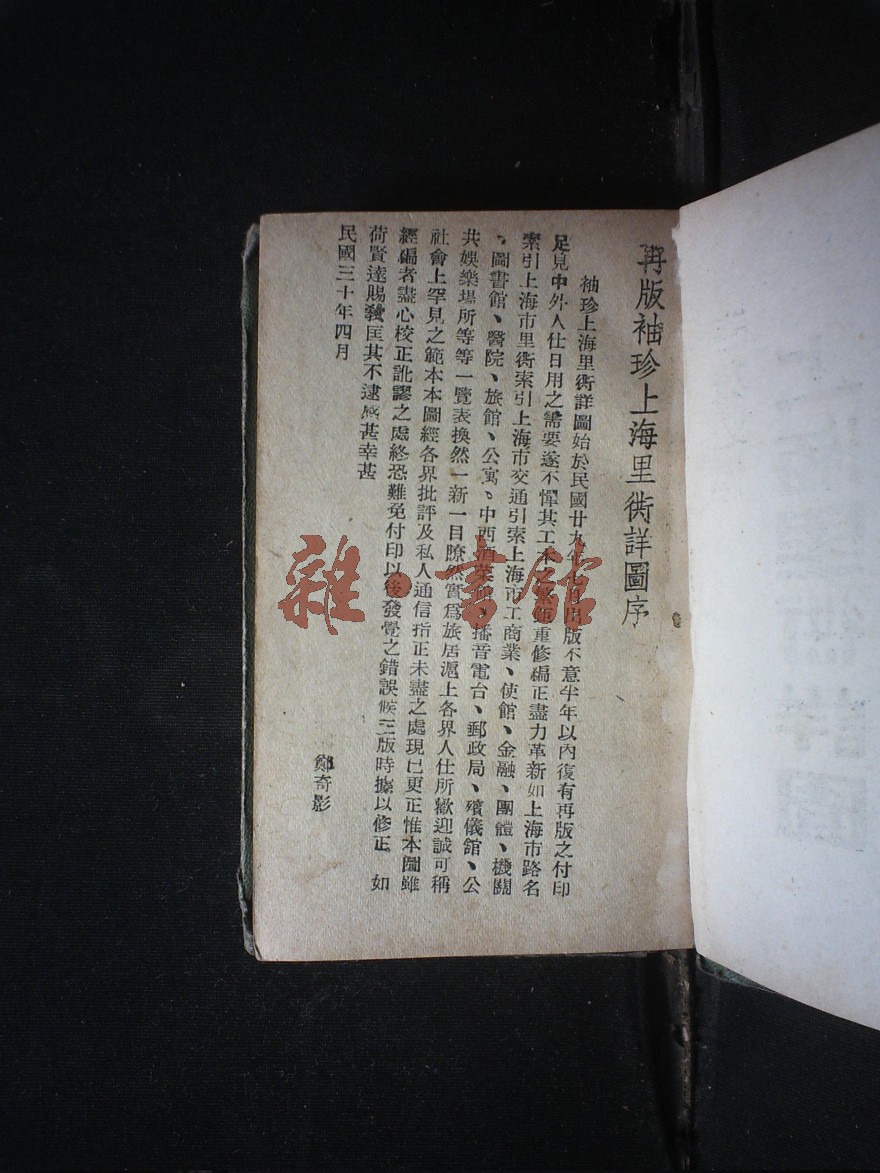 再版袖珍上海里衖詳圖序
袖珍上海里衖詳圖始於民國廿九年七月出版不意半年以內復有再版之付印
足見中外人仕日用之需要遂不憚其工本之繁重修編正盡力革新如上海市路名
索引上海市里衖索引上海市交通引索上海市工商業、使館、金融、團體、機關
、圖書館、醫院、旅館、公寓、中西酒菜、播音電台、郵政局、殯儀館、公
共娛樂場所等等一覽表換然一新一目瞭然實爲旅居滬上各界人仕所歡迎誠可稱
社會上罕見之範本本圖經各界批評及私人通信指正未盡之處現已更正惟本圖雖
經編者盡心校正訛謬之處終恐難免付印以後發覺之錯誤候三版時據以修正 如
荷賢達賜教匡其不逮感甚幸甚
民國三十年四月
鄭奇影
雜·書館